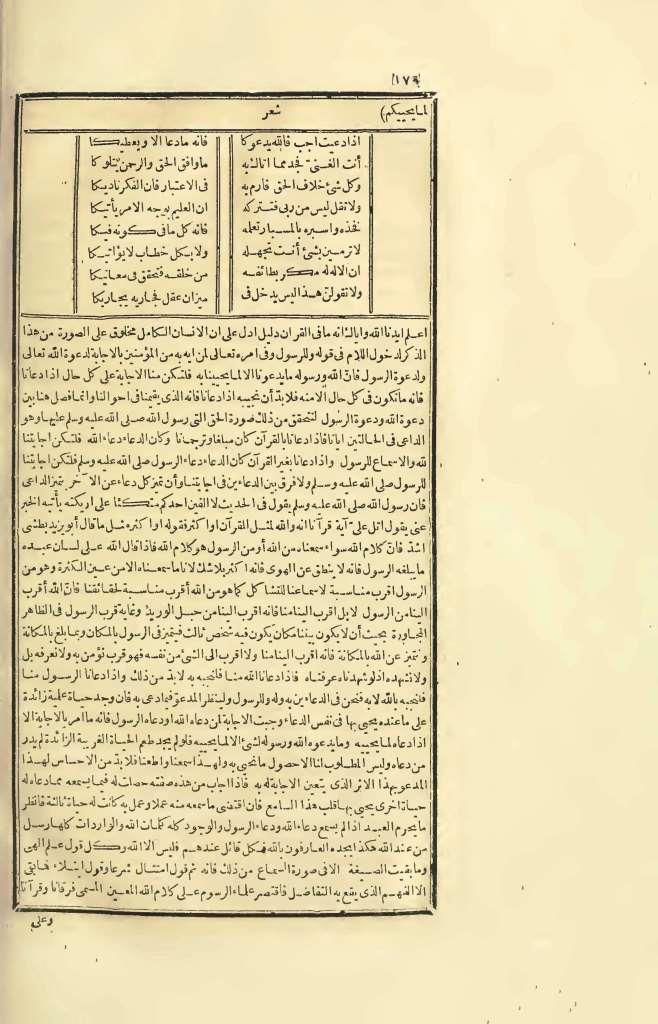 (١٧٩)
لما يحييكم) شعر
اذا دعيت اجب فالله يدعوكا فانه مادعا الا ويعطيكا
أنت الغنىّ فجد مما اتاك به ماوافق الحق والرحمن يتلوكا
وكل شئ خلاف الحق فارم به فى الاعتبار فان الفكر ناديكا
ولا تقل ليس من ربى فتتركه ان العليم بوجه الامر يأتيكا
فخذه واسبره بالمسبار تعلمه فانه كل مافى كونه فيكا
لا ترمين بشئ أنت تجهله ولا بكل خطاب لا يؤاتيكا
ان الاله له مكر بطائفه من خلقه فتحقق فى معانيكا
ولا تقولن هذا ليس يدخل فى ميزان عقل فجاريه يجاريكا
اعلم ايدنا الله واياك انه مافى القرآن دليل ادل على ان الانسان الكامل مخلوق على الصورة من هذا
الذكر لدخول اللام فى قوله وللرسول وفى امره تعالى لمن ايه به من المؤمنين بالاجابة لدعوة الله تعالى
ولدعوة الرسول فان الله ورسوله مايدعونا الا لما يحيينا به فلتكن منا الاجابة على كل حال اذا دعانا
فانه مانكون فى كل حال الا منه فلا بدّ أن نجيبه اذا دعانا فانه الذى يقيمنا فى احوالنا وانما فصل هنا بين
دعوة الله ودعوة الرسول لنتحقق من ذلك صورة الحق التى رسول الله صلى الله عليه وسلم عليها وهو
الداعى فى الحالتين ايانا فاذا دعانا بالقرآن كان مبلغا وترجمانا وكان الدعاء دعاء الله فلتكن اجابتنا
لله والاسماع للرسول واذا دعانا بغير القرآن كان الدعاء دعاء الرسول صلى الله عليه وسلم فلتكن اجابتنا
للرسول صلى الله عليه وسلم ولا فرق بين الدعاءين فى اجابتنا وان تميز كل دعاء عن الآخر بتميز الداعى
فان رسول الله صلى الله عليه وسلم يقول فى الحديث لا الفين احدكم متكئا على اريكته يأتيه الخبر
عنى يقول اتل علىّ آية قرآنا انه والله لمثل القرآن او اكثر فقوله او اكثر مثل ما قال أبو يزيد بطشى
اشدّ فان كلام الله سواء سمعناه من الله أو من الرسول هو كلام الله فاذا قال الله على لسان عبده
مايبلغه الرسول فانه لا ينطق عن الهوى فانه اكثر بلا شك لانا ماسمعناه الا من عين الكثرة وهو من
الرسول اقرب مناسبة لاسماعنا للتشاكل كما هو من الله أقرب مناسبة لحقائقنا فان الله أقرب
الينا من الرسول لا بل اقرب الينا منا فانه اقرب الينا من حبل الوريد وغاية قرب الرسول فى الظاهر
المجاورة بحيث أن لا يكون بيننا مكان يكون فيه شخص ثالث فيتميز فى الرسول بالمكان وبما بلغ بالمكانة
ونتميز عن الله بالمكانة فانه اقرب الينا منا ولا اقرب الى الشئ من نفسه فهو قرب نؤمن به ولا نعرفه بل
ولا نشهده اذ لو شهدناه عرفناه فاذا دعانا الله منا فلنجبه به لا بد من ذلك واذا دعانا الرسول منا
فلنجبه بالله لا به فنحن فى الدعاءين به وله وللرسول ولينظر المدعوّ فيما دعى به فان وجد حياة علمية زائدة
على ماعنده يحيى بها فى نفس الدعاء وجبت الاجابة لمن دعاه الله او دعاه الرسول فانه ما امر بالاجابة الا
اذا دعاه لما يحييه ومايدعوه الله ورسوله لشئ الا لما يحييه فلو لم يجد طعم الحياة الغريبة الزائدة لم يدر
من دعاه وليس المطلوب لنا الا حصول مانحيى به ولهذا سمعنا واطعنا فلا بدّ من الاحساس لهذا
المدعو بهذا الاثر الذى يتعين الاجابة له به فاذا اجاب من هذه صفته حصلت له فيما يسمعه مما دعاه له
حياة اخرى يحيى بها قلب هذا السامع فان اقتضى ماسمعه منه عملا وعمل به كانت له حياة ثالثة فانظر
مايحرم العبد اذا لم يسمع دعاء الله ودعاء الرسول والوجود كله كلمات الله والواردات كلها رسل
من عند الله هكذا يجده العارفون بالله فكل قائل عندهم فليس الا الله وكل قول علم الهى
ومابقيت الصيغة الا فى صورة السماع من ذلك فانه ثم قول امتثال شرعا وقول ابتلاء فما بقى
الا الفهم الذى يقع به التفاضل فاقتصر علماء الرسوم على كلام الله المعين المسمى فرقانا وقرآنا
وعلى